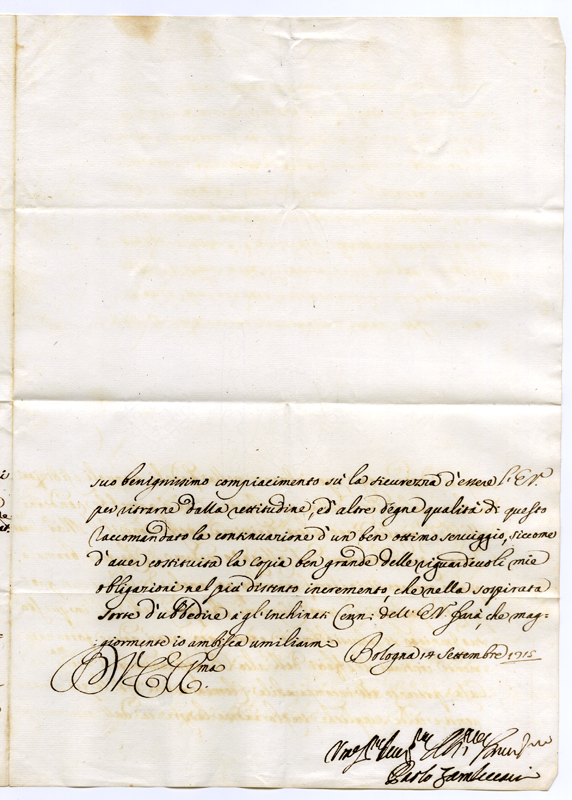 suo benignissimo compiacimento sù la sicurezza d'essere l'E.V.
per ritrarne dalla rettitudine, ed altre degne qualità di questo
raccomandato la continuazione d'un ben ottimo servigio, siccome
d'aver costituita la copia ben grande delle riguardevoli mie
obligazioni nel più distinto incremento, che nella sospirata
sorte d'ubbedire a gl'inchinati Cenni dell'E.V. farà che mag-
giormente io ambisca umiliarm
Bologna 14 Settembre 1715
Paolo Zambeccari